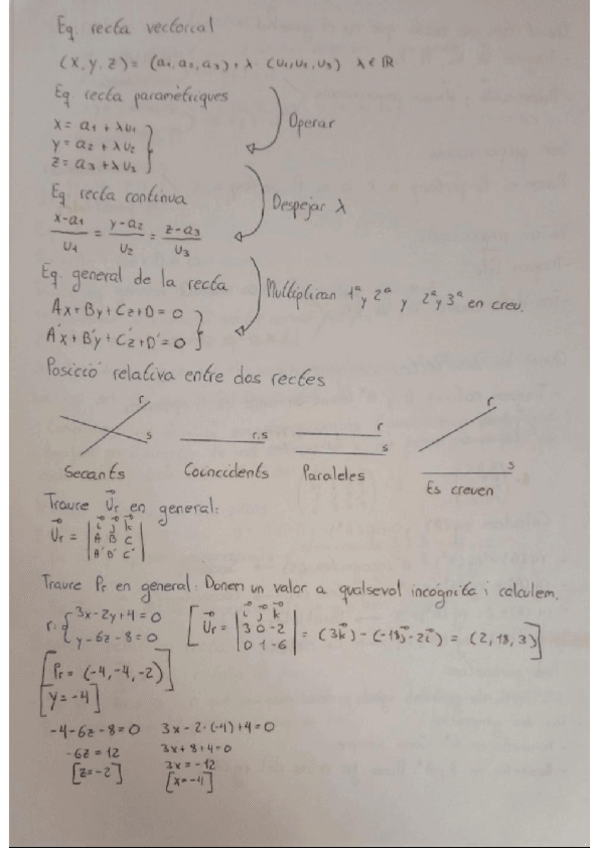 Eq. recta vectorial
(x, y, z) = (a₁, a₂, a₃) + λ · (u₁, u₂, u₃) λ ∈ ℝ
Eq. recta paramètriques
x = a₁ + λu₁
y = a₂ + λu₂
z = a₃ + λu₃
Operar
Eq. recta contínua
(x-a₁)/u₁ = (y-a₂)/u₂ = (z-a₃)/u₃
Despejar λ
Eq. general de la recta
Ax + By + Cz + D = 0
A'x + B'y + C'z + D' = 0
Multiplican 1ª y 2ª y 2ª y 3ª en creu.
Posició relativa entre dos rectes
r
s
Secants
r,s
Coincidents
r
s
Paraleles
r
s
Es creuen
Traure Ur en general:
Ur = | i j k |
| A B C |
| A' B' C' |
Traure Pr en general: Donen un valor a qualsevol incògnita i calculem.
r: { 3x - 2y + 4 = 0
y - 6z - 8 = 0
[ Ur = | i j k |
| 3 0 -2 |
| 0 1 -6 | = (3k) - (-18j - 2i) = (2, 18, 3) ]
[Pr = (-4, -4, -2)]
[y = -4]
-4 - 6z - 8 = 0 3x - 2 · (-4) + 4 = 0
-6z = 12 3x + 8 + 4 = 0
[z = -2] 3x = -12
[x = -4]